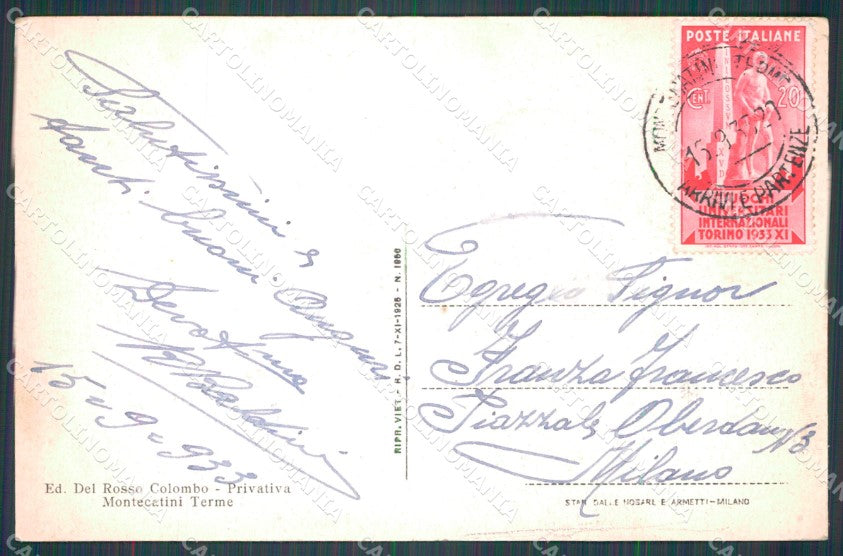 Salutissimi e
tanti buoni Auguri
Devotma
Baldini
15-9-933
Ed. Del Rosso Colombo - Privativa
Montecatini Terme
RIPR. VIET. - R. D. L. 7-XI-1925 - N. 1950
POSTE ITALIANE
CENT. 20
GIUOCHI
UNIVERSITARI
INTERNAZIONALI
TORINO 1933 XI
MONTECATINI TERME
15.9.33
ARRIVI E PARTENZE
Egregio Signor
Franza Francesco
Piazzale Oberdan N3
Milano
STAB. DALLE NOGARE E ARMETTI-MILANO
CARTOLINOMANIA